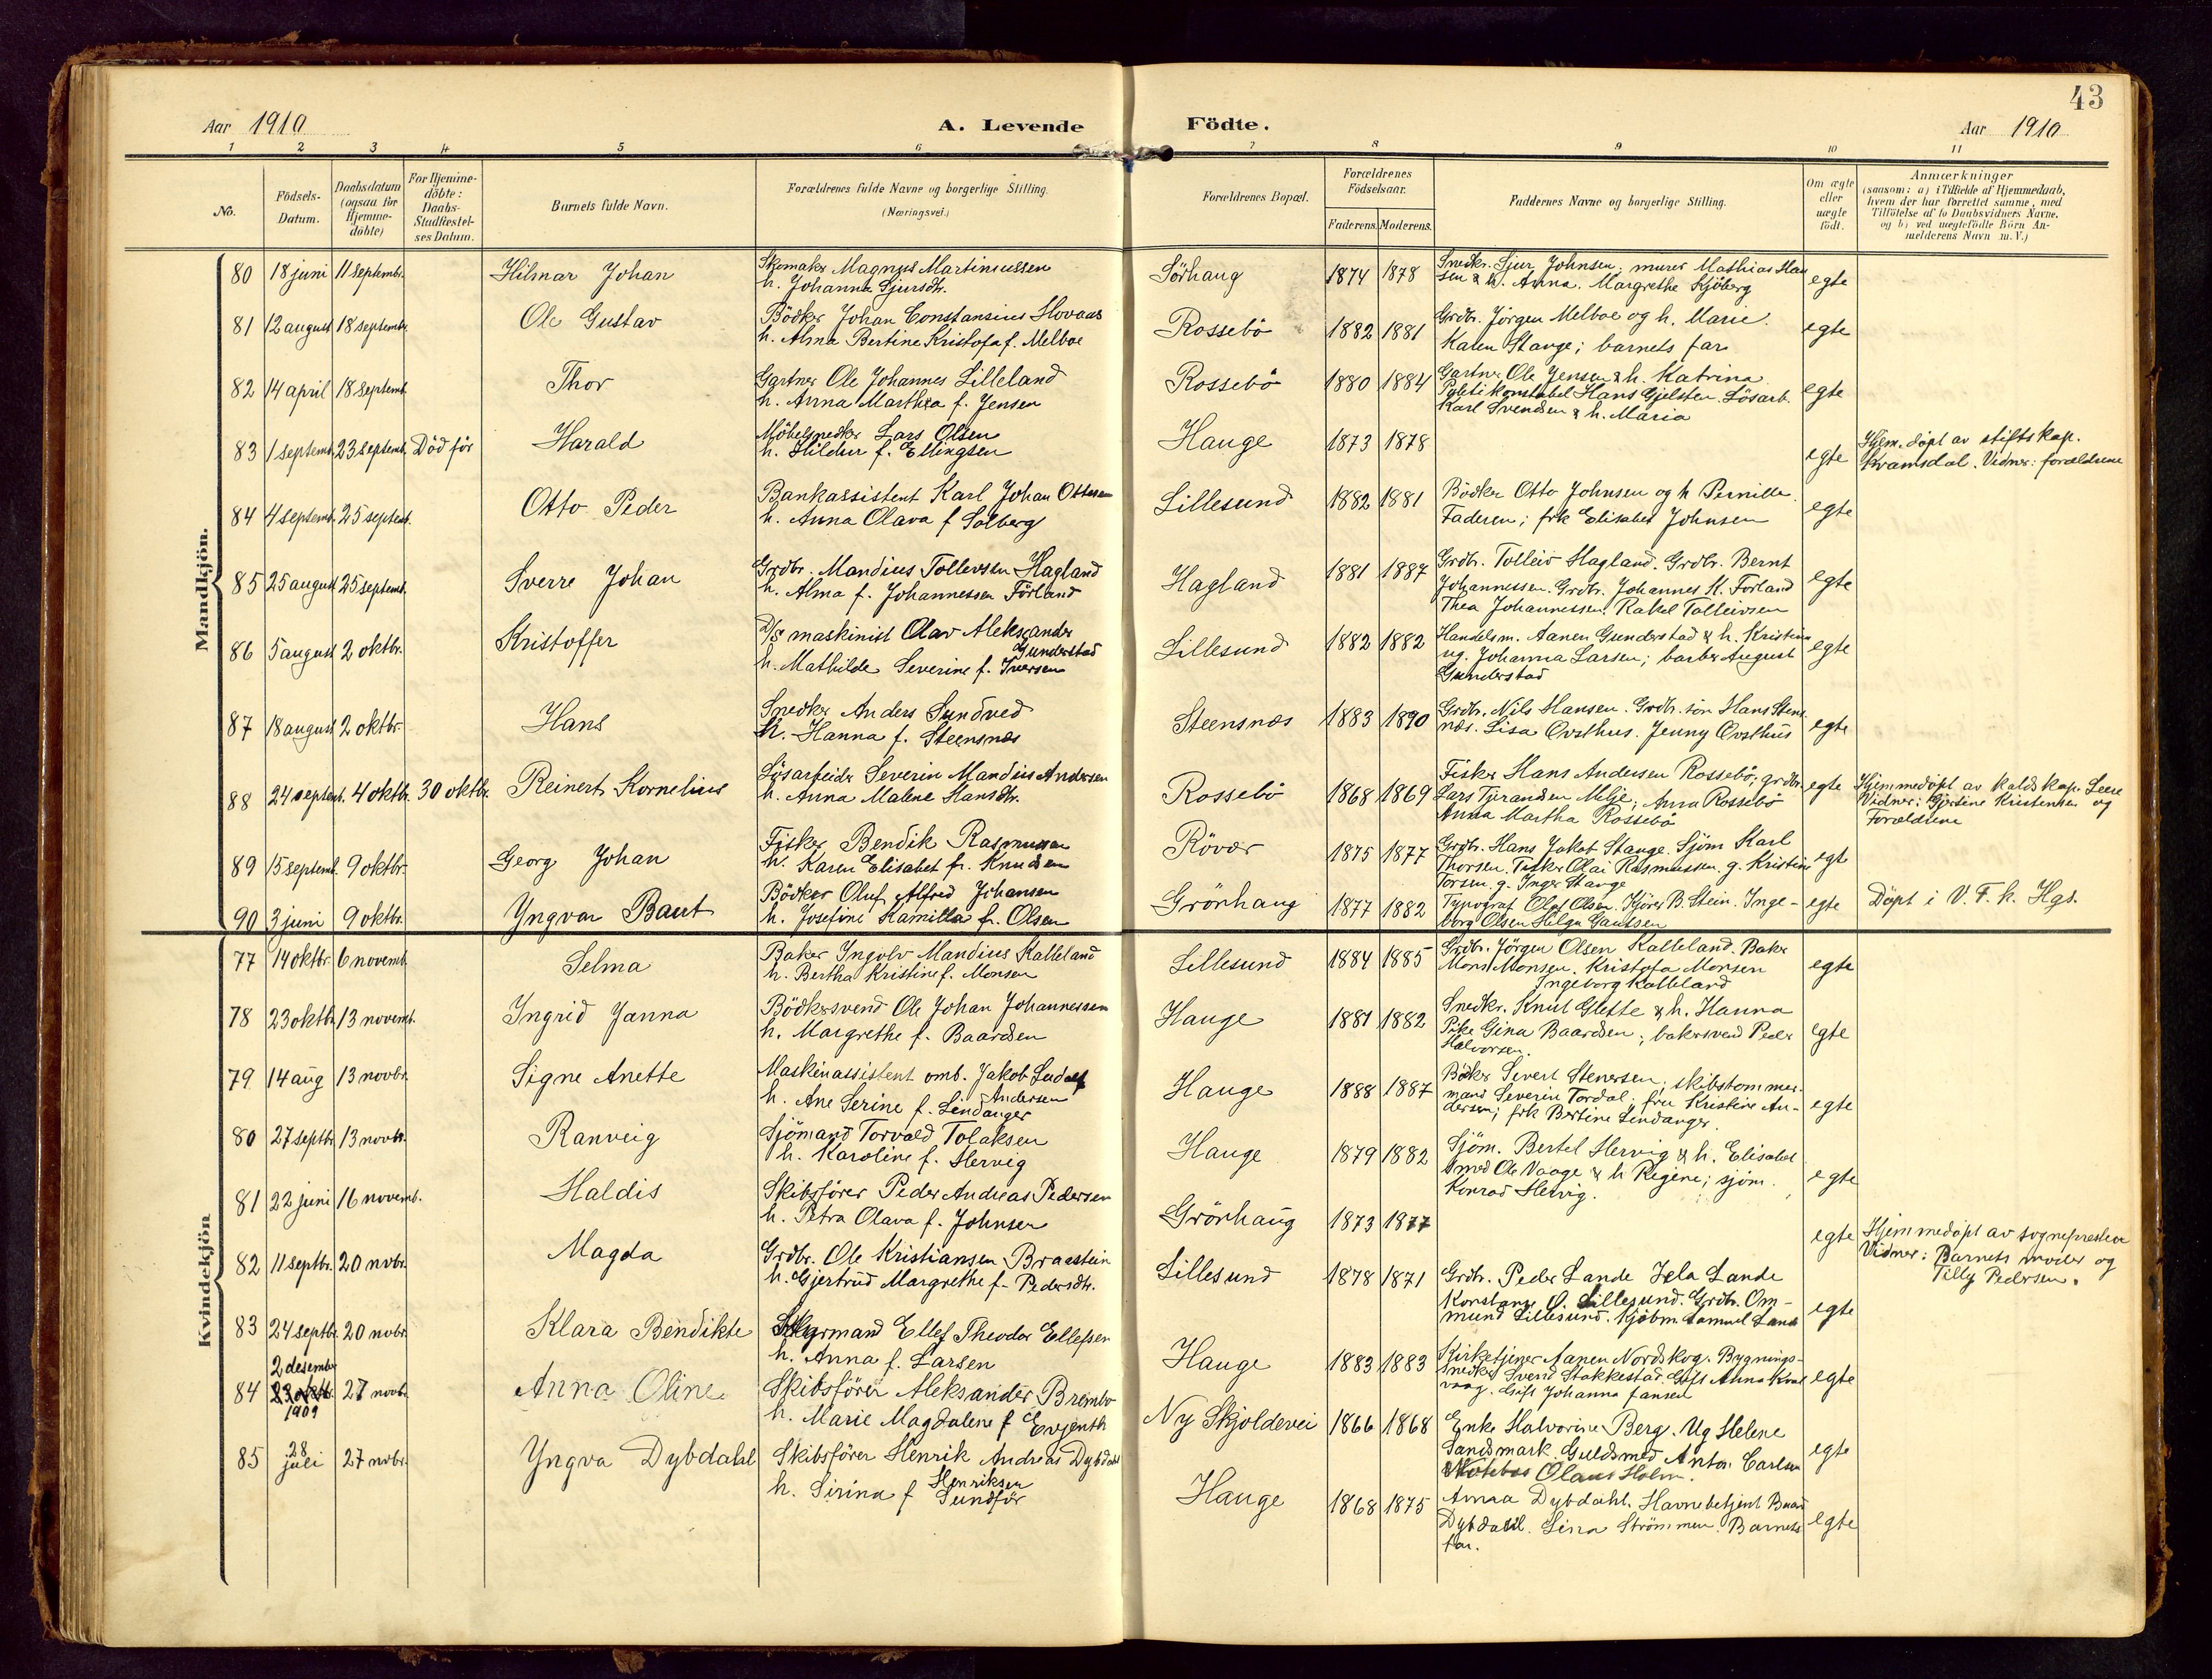 43
Aar 1910
A. Levende
Födte.
Aar 1910
1 2 3 4 5 6 7 8 9 10 11
No.
Födsels-
Datum.
Daabsdatum
(ogsaa for
Hjemme-
döbte)
For Hjemme-
döbte:
Daabs-
Stadfæstel-
ses Datum.
Barnets fulde Navn.
Forældrenes fulde Navne og borgerlige Stilling.
(Næringsvei.)
Forældrenes Bopæl.
Forældrenes
Födselsaar.
Faderens. Moderens.
Faddernes Navne og borgerlige Stilling.
Om ægte
eller
uægte
födt.
Anmærkninger
(saasom: a) i Tilfælde af Hjemmedaab,
hvem der har forrettet samme, med
Tilföielse af to Daabsvidners Navne.
og b) ved uægtefödte Börn An-
melderens Navn m.V.)
Mandkjön.
80 18 juni 11 septembr. Hilmar Johan
Skomaker Magnus Martinussen
h. Johanna Sjursdtr.
Sörhaug 1874 1878
Snedkr. Sjur Johnsen; murer Mathias Han
sen & h. Anna. Margrethe Sjöberg
egte
81 12 august 18 septembr. Ole Gustav
Bödker Johan Constansius Hovaas
h. Alma Bertine Kristofa f. Melboe
Rossebö 1882 1881
Grdbr. Jörgen Melboe og h. Marie.
Karen Stange; barnets far
egte
82 14 april 18 septemb. Thor
Gartner Ole Johannes Lilleland
h. Anna Marthea f. Jensen
Rossebö 1880 1884
Gartner Ole Jensen & h. Katrina
Politikonstabel Hans Gjelsten. Lösarb.
Karl Svendsen & h. Maria
egte
83 1 septemb. 23 septemb. Död för Harald
Möbelsnedker Lars Olsen
h. Hildur f. Ellingsen
Hauge 1873 1878
egte
Hjem. döpt av stiftskap.
Kvamsdal. Vidner: forældrene
84 4 septemb. 25 septemb. Otto Peder
Bankassistent Karl Johan Ottesen
h. Anna Olava f. Solberg
Lillesund 1882 1881
Bödker Otto Johnsen og h Pernille.
Faderen; frk Elisabet Johnsen
egte
85 25 august 25 septemb. Sverre Johan
Grdbr. Mandius Tollevsen Hagland
h. Alma f. Johannessen Förland
Hagland 1881 1887
Grdbr. Tolleiv Hagland. Grdbr. Bernt
Johannessen. Grdbr. Johannes H. Förland
Thea Johannessen. Rakel Tolleivsen
egte
86 5 august 2 oktbr. Kristoffer
D/S maskinist Olav Aleksander
Gunderstad
h. Mathilde Severine f. Iversen
Lillesund 1882 1882
Handelsm. Aanen Gunderstad & h. Kristina
ug. Johanna Larsen; barber August
Gunderstad
egte
87 18 august 2 oktbr. Hans
Snedker Anders Sundved
h. Hanna f. Steensnæs
Steensnæs 1883 1890
Grdbr. Nils Hansen. Grdbr. sön Hans Stens
næs. Lisa Ovsthus. Jenny Ovsthus
egte
88 24 septemt. 4 oktbr. 30 oktbr. Reinert Kornelius
Lösarbeider Severin Mandius Andersen
h. Anna Malene Hansdtr.
Rossebö 1868 1869
Fisker Hans Andersen Rossebö; grdbr.
Lars Tjerandsen Milje; Anna Rossebö
Anna Martha Rossebö
egte
Hjemmedöpt av kaldskap. Leere
Vidner: Gjertine Kristensen og
Forældrene
89 15 septemb. 9 oktbr. Georg Johan
Fisker Bendik Rasmussen
h. Karen Elisabet f. Knudsen
Rövær 1875 1877
Grdbr. Hans Jakob Stange. Sjöm Karl
Thorsen. Fisker Olai Rasmussen. g. Kristine
Torsen. g. Inger Stange
egte
90 3 juni 9 oktbr. Yngvar Baut
Bödker Oluf Alfred Johansen
h. Josefine Kamilla f. Olsen
Grönhaug 1877 1882
Typograf Olaf Olsen. Kjörer B. Stein. Inge-
borg Olsen Helga Gautesen
egte
Döpt i V. F. k. Hgs.
Kvindekjön
77 14 oktbr. 6 novemb. Selma
Baker Ingolv Mandius Kalleland
h. Bertha Kristine f. Monsen
Lillesund 1884 1885
Grdbr. Jörgen Olsen Kalleland. Baker
Mons Monsen. Kristofa Monsen
Ingeborg Kalleland
egte
78 23 oktbr. 13 novemt. Ingrid Janna
Bödkersvend Ole Johan Johannessen
h. Margrethe f. Baardsen
Hauge 1881 1882
Snedkr. Knut Glette & h. Hanna
Pike Gina Baardsen; bakersvend Peder
Halvorsen.
egte
79 14 aug 13 novbr. Signe Anette
Maskinassistent omb. Jakob Ludolf
Andersen
h. Ane Serine f. Lindanger
Hauge 1888 1887
Bödker Sivert Stenersen; skibstömmer-
mand Severin Tordal; fru Kristine An-
dersen; frk Bertine Lindanger.
egte
80 27 septbr 13 novbr. Ranveig
Sjömand Torvald Tolaksen
h. Karoline f. Hervig
Hauge 1879 1882
Sjöm. Bertel Hervig & h. Elisabet
Smed Ole Vaage & h Regine; sjöm.
Konrad Hervig.
egte
81 22 juni 16 novemb. Haldis
Skibsförer Peder Andreas Pedersen
h. Petra Olava f. Johnsen
Grönhaug 1873 1877
egte
Hjemmedöpt av sognepresten
Vidner: Barnets moder og
Tilly Pedersen.
82 11 septbr. 20 nvbr. Magda
Grdbr. Ole Kristiansen Braastein
h. Gjertrud Margrethe f. Pedersdtr.
Lillesund 1878 1871
Grdbr. Peder Lande Lande
Konstanse O. Lillesund. Grdbr. Om-
mund Lillesund. Kjöbm. Samuel Lande
egte
83 24 septbr. 20 nvbr. Klara Bendikte
Ellef Theodor Ellefsen
h. Anna f. Larsen
Hauge 1883 1883
Kirketjener Aanen Nordskog. Bygnings-
snedker Svend Stakkestad. Gift Anna Kval
vaag. Gift Johanna Jansen
egte
84 2 desembr 23 oktb. 1909 27 novb. Anna Oline
Skibsförer Aleksander Brembo
h. Marie Magdalene f Evjenth
Ny Skjoldevei 1866 1868
Enke Halvorine Berg. Ug Helene
Sandsmark. Guldsmed Anton Carlsen
Olaus Holm.
egte
85 28 juli 27 nvbr. Yngva Dybdahl
Skibsförer Henrik Andreas Dybdahl
Henriksen
h. Sirina f Sundför
Hauge 1868 1875
Anna Dybdahl. Havnebetjent Baard
Dybdahl. Sina Strömmen. Barnets
far.
egte